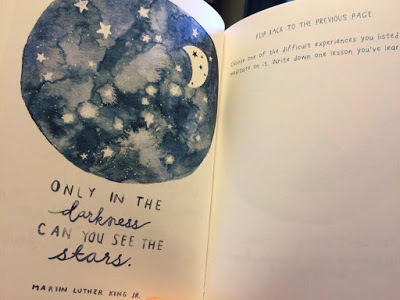 ONLY IN THE
darkness
CAN YOU SEE THE
stars.
MARTIN LUTHER KING JR.
FLIP BACK TO THE PREVIOUS PAGE.
Choose one of the difficult experiences you listed
meditate on it. Write down one lesson you've